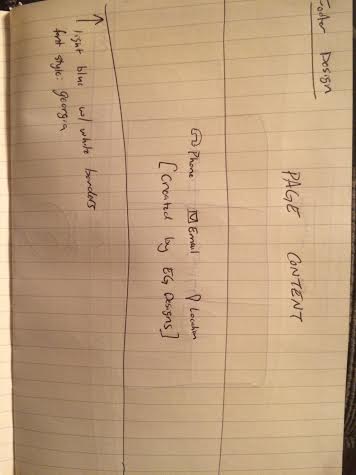 Footer Design
PAGE CONTENT
Phone Email Location
[Created by EG Designs]
light blue w/ white borders
font style: georgia